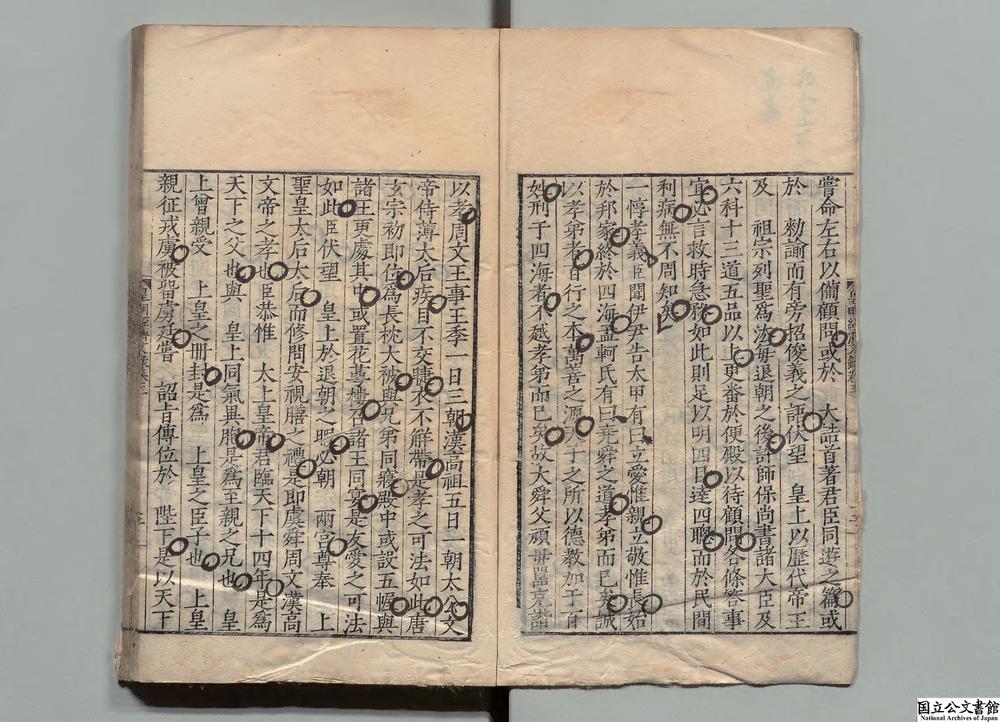 嘗命左右以備顧問或於　大誥首著君臣同遊之篇或
於　勑諭而有旁招俊義之語伏望　皇上以歷代帝王
及　祖宗列聖爲法每退朝之後許師保尚書諸大臣及
六科十三道五品以上更番於便殿以待顧問各條答事
宜必言救時急務如此則足以明四目達四聰而於民間
利病無不周知矣
一惇孝義臣聞伊尹告太甲有曰立愛惟親立敬惟長始
於邦家終於四海孟軻氏有曰堯舜之道孝弟而已矣誠
以孝弟者百行之本萬善之源天子之所以德教加于百
姓刑于四海者不越孝弟而已矣故大舜父頑母嚚克諧
以孝周文王事王季一日三朝漢高祖五日一朝太公文
帝侍薄太后疾目不交睫衣不解帶是孝之可法如此唐
玄宗初即位爲長枕大被與兄弟同寢殿中或設五幄與
諸王更處其中或置花萼樓召諸王同宴是友愛之可法
如此臣伏望　皇上於退朝之暇必朝　兩宮尊奉　上
聖皇太后太后而修問安視膳之禮是即虞舜周文漢高
文帝之孝也臣恭惟　太上皇帝君臨天下十四年是爲
天下之父也與　皇上同氣異胞是爲至親之兄也　皇
上曾親受　上皇之冊封是爲　上皇之臣子也　上皇
親征戎虜被留虜廷嘗　詔旨傳位於　陛下是以天下
国立公文書館
National Archives of Japan